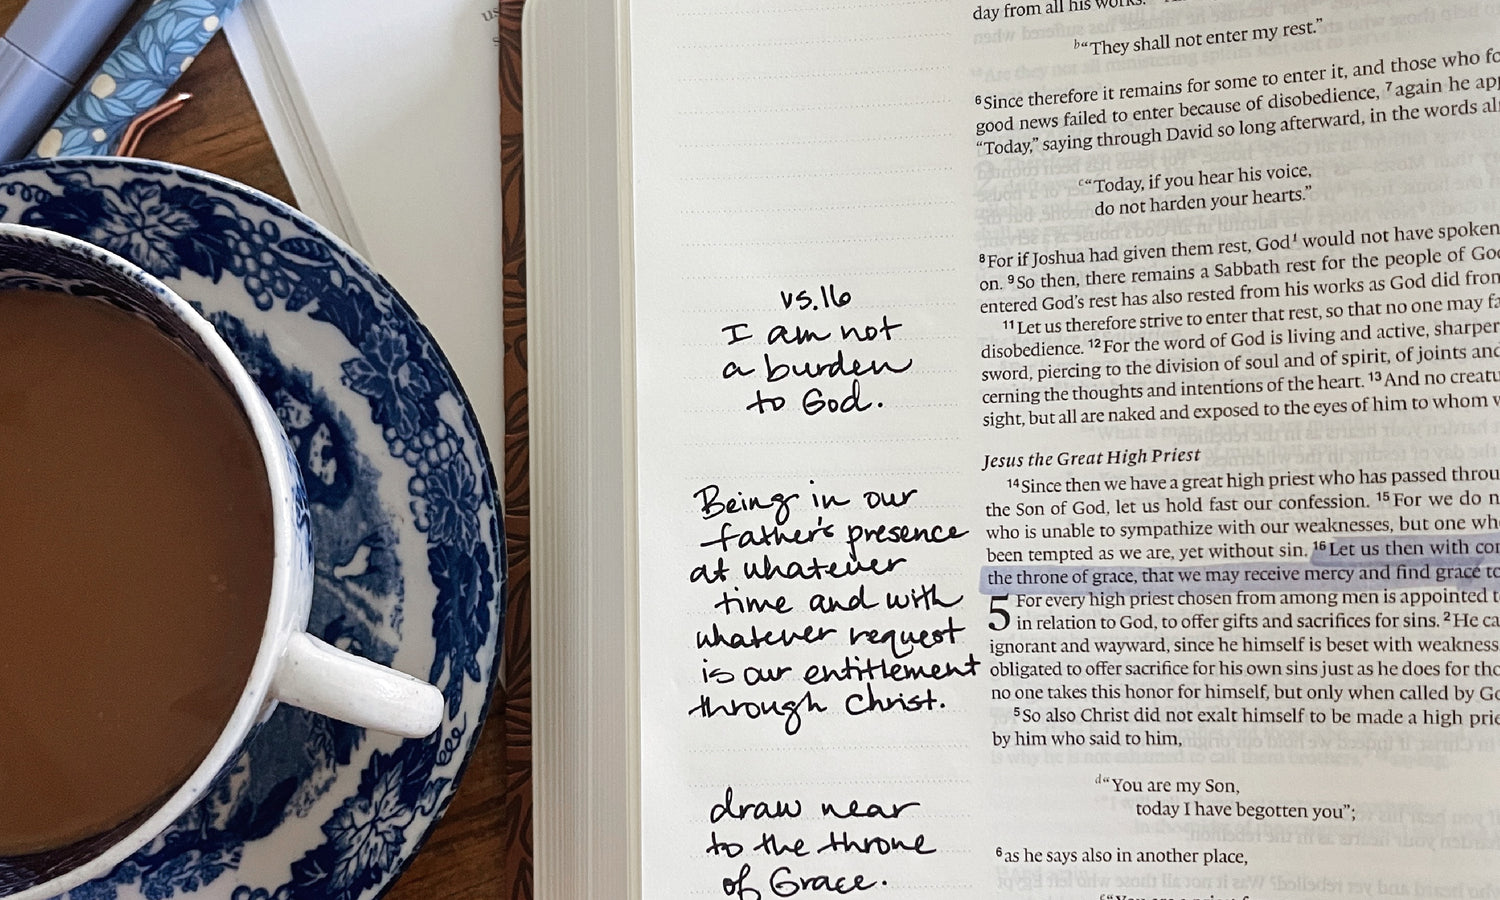 us
s
vs.16
I am not
a burden
to God.
Being in our
father's presence
at whatever
time and with
whatever request
is our entitlement
through Christ.
draw near
to the throne
of Grace.
day from all his works.
b“They shall not enter my rest.”
6 Since therefore it remains for some to enter it, and those who fo
good news failed to enter because of disobedience, 7 again he app
“Today,” saying through David so long afterward, in the words al
c“Today, if you hear his voice,
do not harden your hearts.”
8 For if Joshua had given them rest, God1 would not have spoken
on. 9 So then, there remains a Sabbath rest for the people of Go
entered God’s rest has also rested from his works as God did from
11 Let us therefore strive to enter that rest, so that no one may fa
disobedience. 12 For the word of God is living and active, sharper
sword, piercing to the division of soul and of spirit, of joints and
cerning the thoughts and intentions of the heart. 13 And no creatu
sight, but all are naked and exposed to the eyes of him to whom
Jesus the Great High Priest
14 Since then we have a great high priest who has passed throu
the Son of God, let us hold fast our confession. 15 For we do n
who is unable to sympathize with our weaknesses, but one wh
been tempted as we are, yet without sin. 16 Let us then with con
the throne of grace, that we may receive mercy and find grace to
5 For every high priest chosen from among men is appointed t
in relation to God, to offer gifts and sacrifices for sins. 2 He ca
ignorant and wayward, since he himself is beset with weakness
obligated to offer sacrifice for his own sins just as he does for tho
no one takes this honor for himself, but only when called by Go
5 So also Christ did not exalt himself to be made a high prie
by him who said to him,
d“You are my Son,
today I have begotten you”;
6 as he says also in another place,